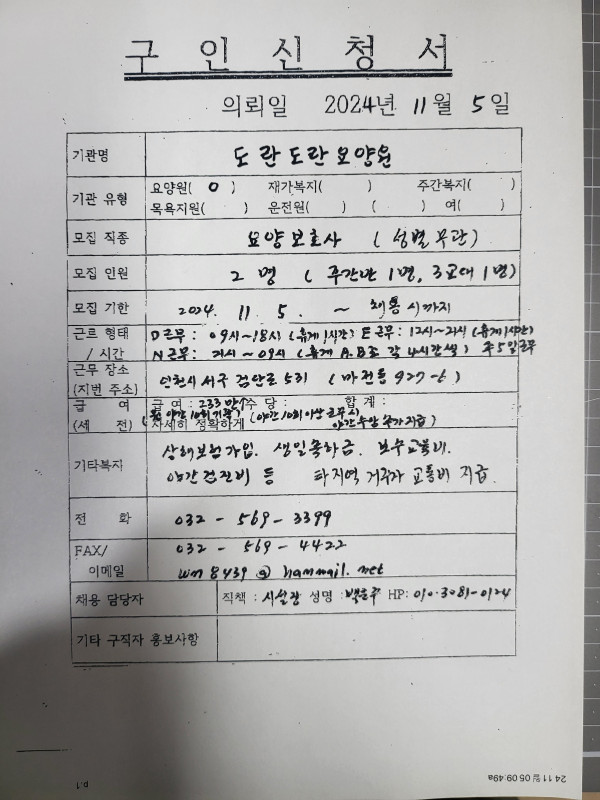 구 인 신 청 서
의뢰일 2024년 11월 5일
기관명 도란도란요양원
기관 유형 요양원( O ) 재가복지( ) 주간복지( )
목욕지원( ) 운전원( ) ( ) 여( )
모집 직종 요양보호사 (성별무관)
모집 인원 2명 (주간만 1명, 3교대 1명)
모집 기한 2024. 11. 5. ~ 채용시까지
근로 형태 D근무: 09시~18시 (휴게1시간) E근무: 12시~21시 (휴게1시간)
/ 시간 N근무: 21시~09시 (휴게 A.B조 각 4시간씩) 주5일근무
근무 장소 인천시 서구 검단로 531 (마전동 927-6)
(지번 주소)
급 여 급 여 : 233만 수 당 : 합 계 :
(세 전) 자세히 정확하게
야간10회기준) (야간10회이상 근무시
야간수당 추가지급)
기타복지 상해보험가입. 생일축하금. 보수교육비.
야간검진비 등 타지역 거주자 교통비 지급.
전 화 032 - 569 - 3399
FAX/ 032 - 569 - 4422
이메일 wm8439@hanmail.net
채용 담당자 직책 : 시설장 성명 : HP: 010-3081-0124
기타 구직자 홍보사항
24 11월 05 09:49a
p.1